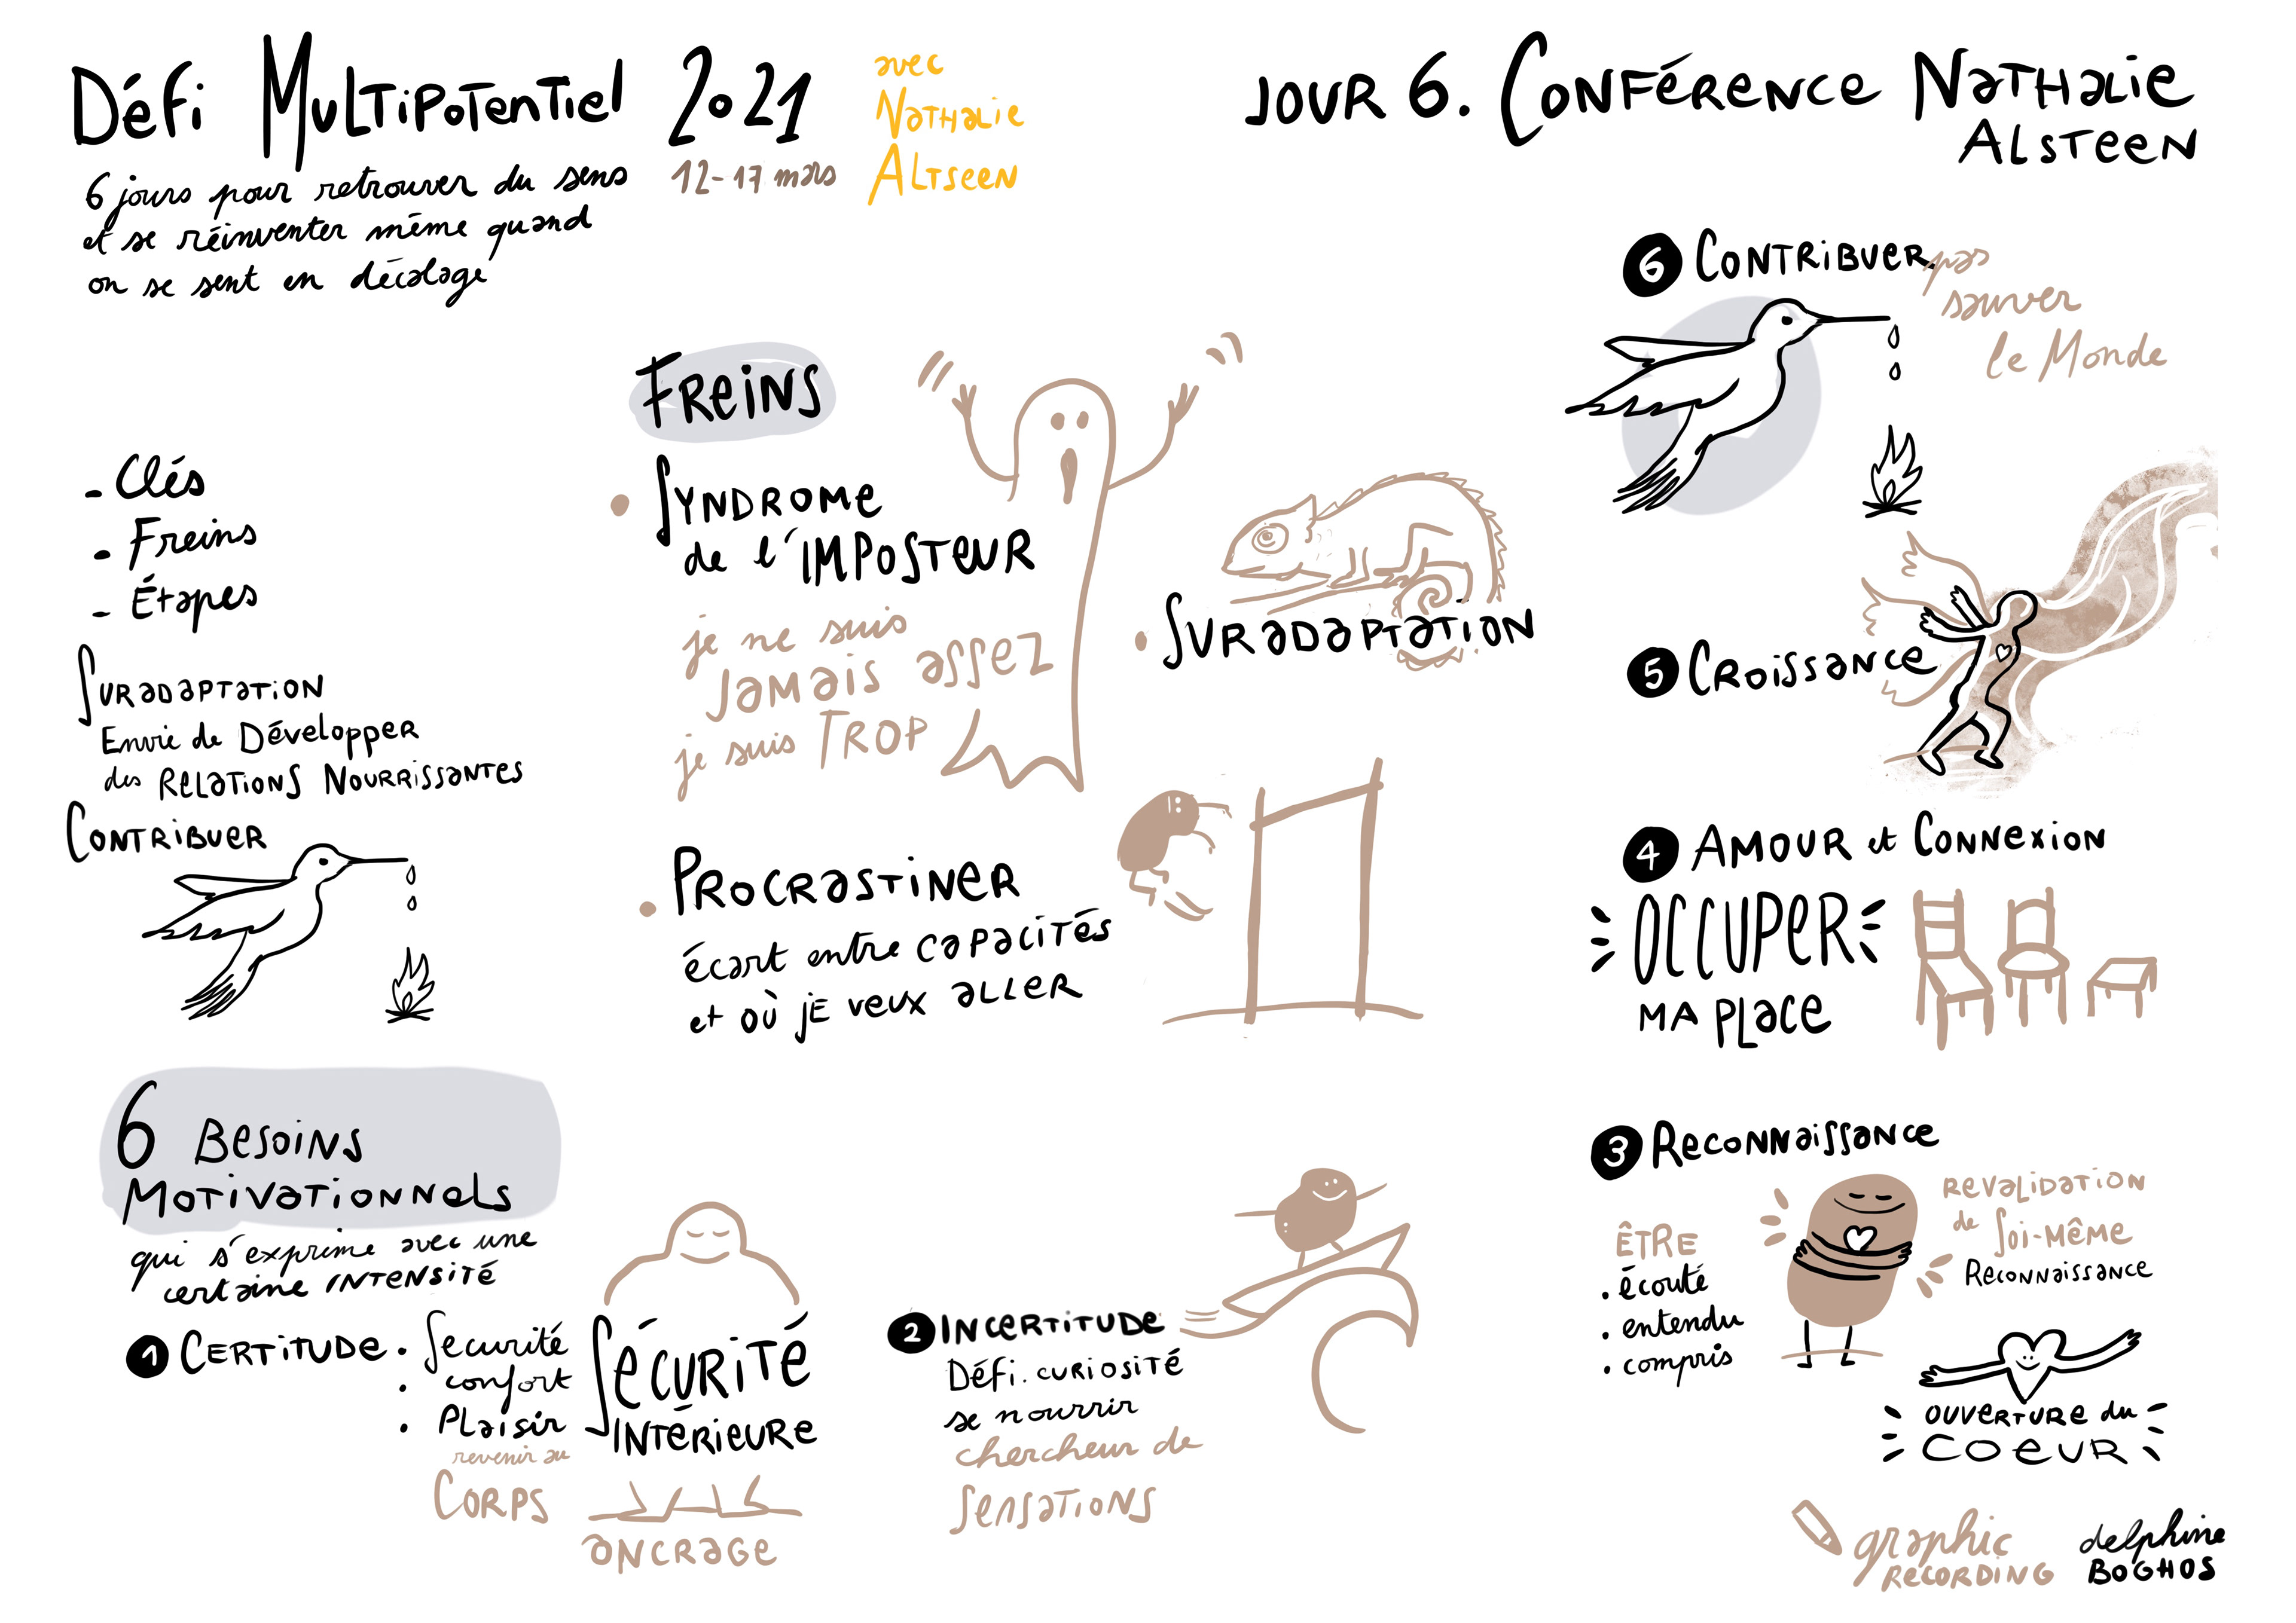 Défi Multipotentiel 2021
12-17 mars
avec
Nathalie
Altseen
6 jours pour retrouver du sens
et se réinventer même quand
on se sent en décalage
JOUR 6. Conférence Nathalie
Alsteen
- Clés
- Freins
- Étapes
Suradaptation
Envie de Développer
des Relations Nourrissantes
Contribuer
Freins
• Syndrome
de l'IMPOSTEUR
je ne suis
Jamais assez
je suis TROP
• Suradaptation
• Procrastiner
écart entre capacités
et où je veux aller
6 Besoins
Motivationnels
qui s'exprime avec une
certaine INTENSITÉ
1 Certitude
• Securité
• confort
• Plaisir
revenir au
Corps
Sécurité
Intérieure
ancrage
2 Incertitude
Défi. curiosité
se nourrir
chercheur de
Sensations
3 Reconnaissance
ÊTRE
• écouté
• entendu
• compris
Revalidation
de Soi-Même
Reconnaissance
ouverture du
coeur
4 Amour et Connexion
OCCUPER
MA PLACE
5 Croissance
6 Contribuer.
pas
sauver
le Monde
graphic
Recording
delphine
BOGHOS